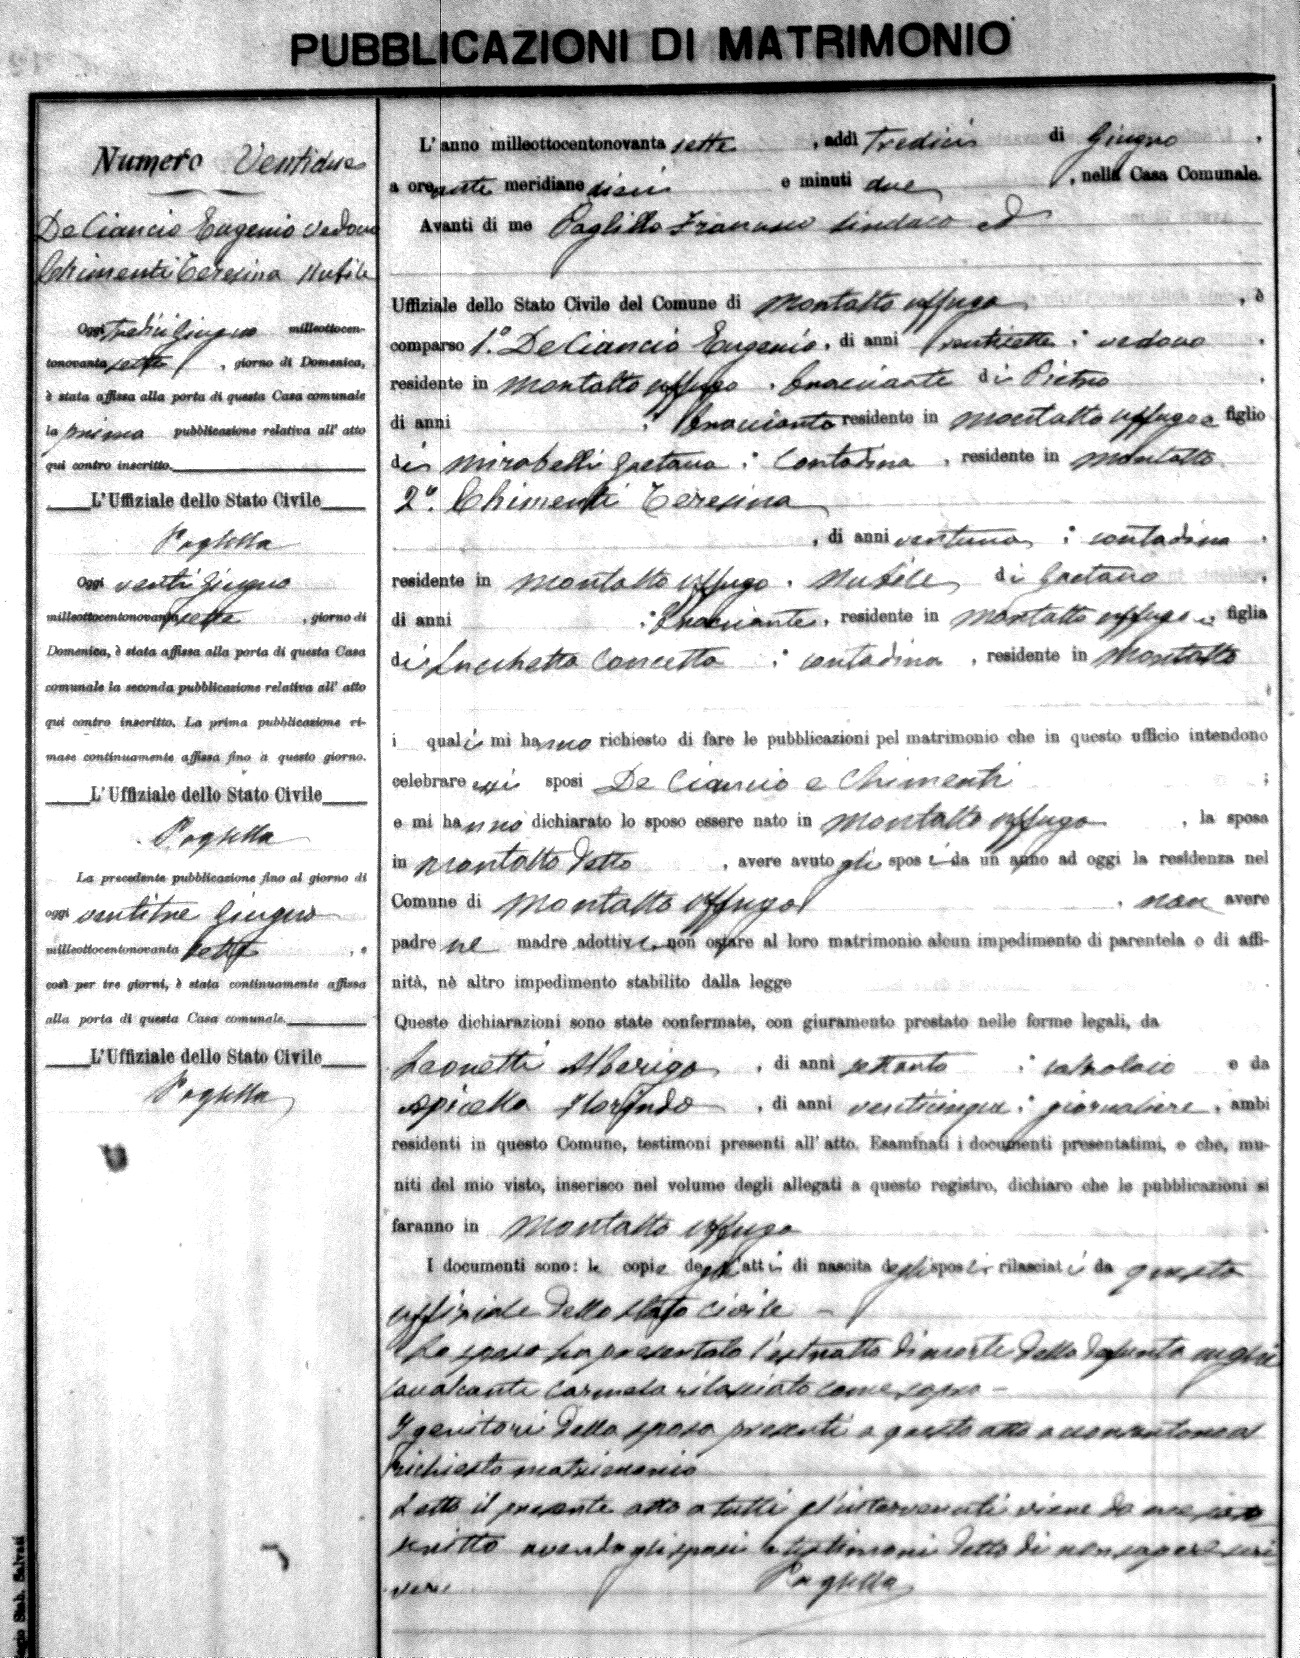 PUBBLICAZIONI DI MATRIMONIO
Numero Ventidue
De Ciancio Eugenio vedovo
Chimenti Teresina Nubile
Oggi tredici Giugno milleottocen-
tonovanta sette, giorno di Domenica,
è stata affissa alla porta di questa Casa comunale
la prima pubblicazione relativa all' atto
qui contro inscritto.
L'Uffiziale dello Stato Civile
Paglilla
Oggi venti Giugno
milleottocentonovanta sette, giorno di
Domenica, è stata affissa alla porta di questa Casa
comunale la seconda pubblicazione relativa all' atto
qui contro inscritto. La prima pubblicazione ri-
mase continuamente affissa fino a questo giorno.
L'Uffiziale dello Stato Civile
Paglilla
La precedente pubblicazione fino al giorno di
oggi ventitre Giugno
milleottocentonovanta sette, e
così per tre giorni, è stata continuamente affissa
alla porta di questa Casa comunale.
L'Uffiziale dello Stato Civile
Paglilla
L' anno milleottocentonovanta sette, addì tredici di Giugno,
a ore ante meridiane dieci e minuti due, nella Casa Comunale.
Avanti di me Paglilla Francesco Sindaco ed
Uffiziale dello Stato Civile del Comune di Montalto Uffugo, è
comparso 1.° De Ciancio Eugenio, di anni ventisette; vedovo,
residente in Montalto Uffugo, bracciante di Pietro,
di anni ; bracciante residente in Montalto Uffugo e figlio
di Mirabelli Gaetana; Contadina, residente in Montalto
2.° Chimenti Teresina
, di anni ventuno; contadina,
residente in Montalto Uffugo, Nubile di Gaetano,
di anni ; bracciante, residente in Montalto Uffugo e, figlia
di Lucchetta Concetta; contadina, residente in Montalto
;
i quali mi hanno richiesto di fare le pubblicazioni pel matrimonio che in questo ufficio intendono
celebrare essi sposi De Ciancio e Chimenti ;
e mi hanno dichiarato lo sposo essere nato in Montalto Uffugo, la sposa
in Montalto detto, avere avuto gli sposi da un anno ad oggi la residenza nel
Comune di Montalto Uffugo, non avere
padre ne madre adottivi, non ostare al loro matrimonio alcun impedimento di parentela o di affi-
nità, nè altro impedimento stabilito dalla legge
Queste dichiarazioni sono state confermate, con giuramento prestato nelle forme legali, da
Leonetti Alberigo, di anni settanta; calzolaio e da
Apicella Florindo, di anni venticinque; giornaliere, ambi
residenti in questo Comune, testimoni presenti all' atto. Esaminati i documenti presentatimi, e che, mu-
niti del mio visto, inserisco nel volume degli allegati a questo registro, dichiaro che le pubblicazioni si
faranno in Montalto Uffugo
I documenti sono: le copie degli atti di nascita degli sposi rilasciati da questo
uffiziale dello stato civile
Lo sposo ha presentato l'estratto di morte della defunta moglie
Cavalcante Carmela rilasciato come sopra
I genitori della sposa presenti a questo atto acconsentono al
richiesto matrimonio
Letto il presente atto a tutti gl'intervenuti viene da me sotto
scritto avendo gli sposi e testimoni detto di non sapere scri
vere. Paglilla